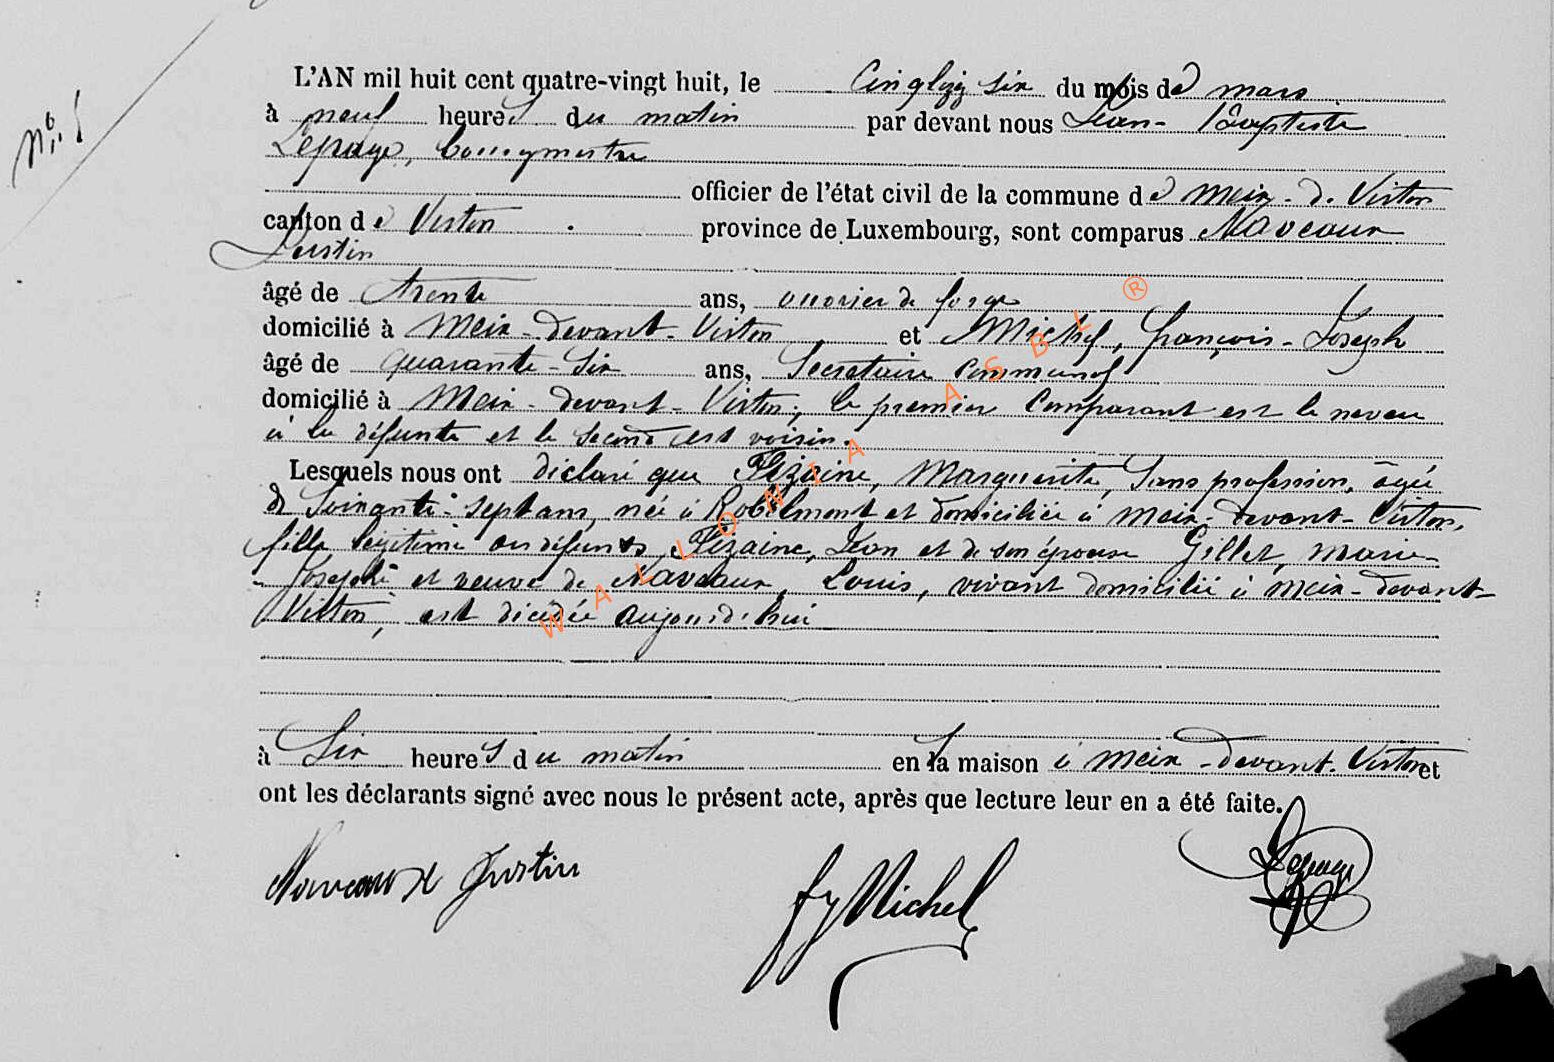 N° 5
L'AN mil huit cent quatre-vingt huit, le Vingt six du mois de mars
à neuf heures du matin par devant nous Jean-Baptiste
Lepage, bourgmestre
officier de l'état civil de la commune de Meix-d. Virton
canton de Virton province de Luxembourg, sont comparus Naveaux
Justin
âgé de trente ans, ouvrier de forge
domicilié à Meix-devant-Virton et Michel, François-Joseph
âgé de quarante-six ans, Secrétaire Communal
domicilié à Meix-devant-Virton; le premier Comparant est le neveu
à la défunte et le second est voisin.
Lesquels nous ont déclaré que Fizaine, Marguerite, Sans profession, âgée
de Soixante-sept ans, née à Robelmont et domiciliée à Meix-devant-Virton,
fille légitime des défunts Fizaine, Jean et de son épouse Gillet, Marie-
Josephe et veuve de Naveaux, Louis, vivant domicilié à Meix-devant-
Virton, est décédée aujourd'hui
à Six heures du matin en sa maison à Meix-devant-Virton et
ont les déclarants signé avec nous le présent acte, après que lecture leur en a été faite.
Naveaux Justin fj Michel Lepage
WALLONIA ASBL ®